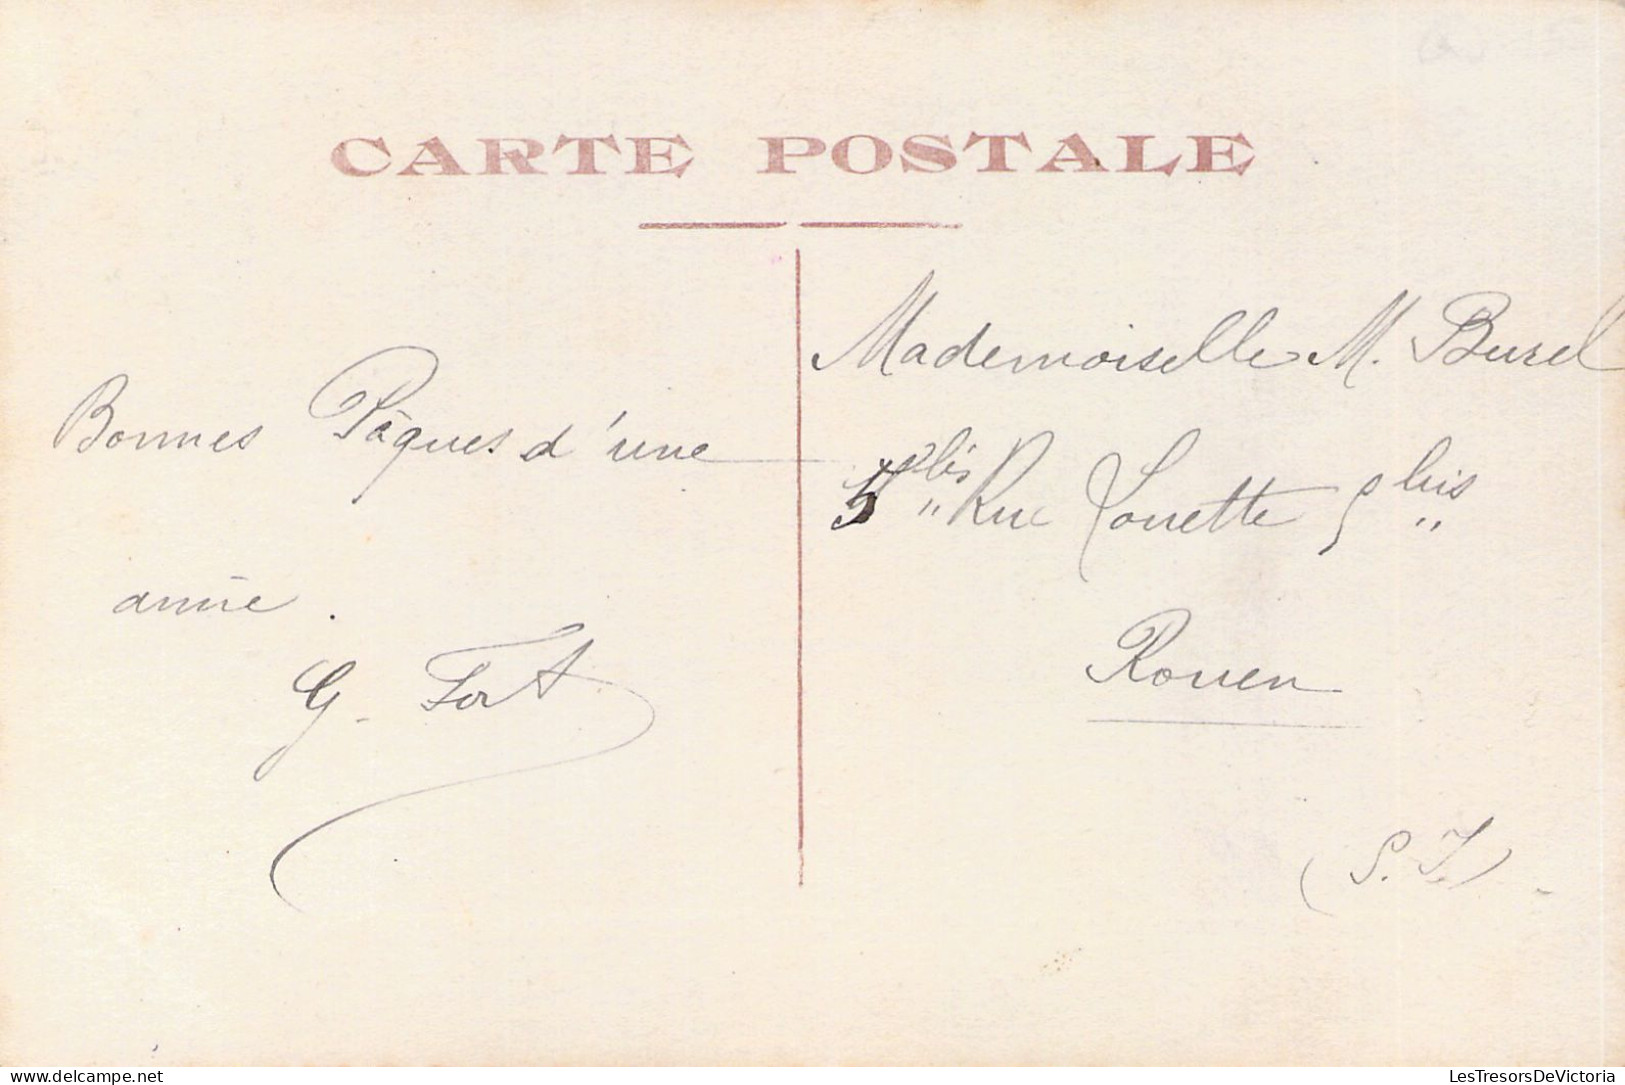 CARTE POSTALE
Bonnes Pâques d'une
amie.
G. Fort
Mademoiselle M. Burel
5 bis Rue Louette 5 bis
Rouen
(S. I.)
LesTresorsDeVictoria @ delcampe.net